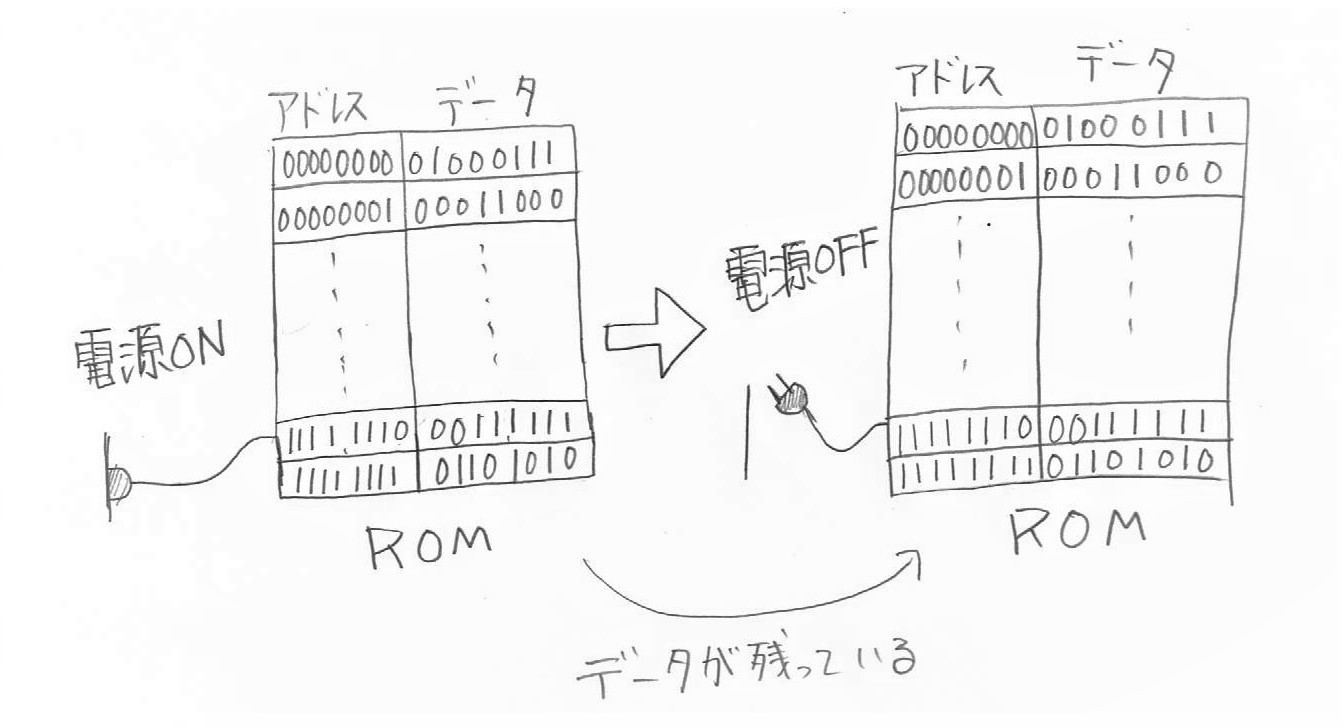 アドレス データ
00000000 01000111
00000001 00011000
11111110 00111111
11111111 01101010
ROM
電源ON
アドレス データ
00000000 01000111
00000001 00011000
11111110 00111111
11111111 01101010
ROM
電源OFF
データが残っている